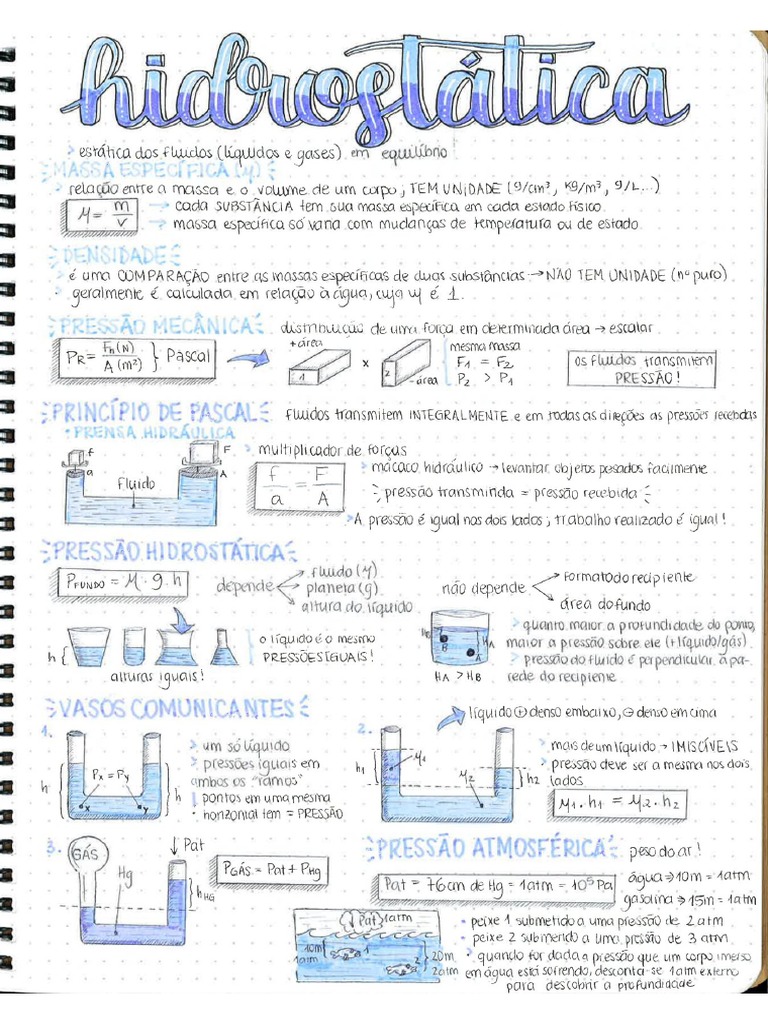 hidrostática
> estática dos fluidos (líquidos e gases) em equilíbrio
MASSA ESPECÍFICA (μ)
> relação entre a massa e o volume de um corpo, TEM UNIDADE (g/cm³, kg/m³, g/L...)
μ = m/v
→ cada SUBSTÂNCIA tem sua massa específica em cada estado físico.
→ massa específica só varia com mudanças de temperatura ou de estado.
DENSIDADE
> é uma COMPARAÇÃO entre as massas específicas de duas substâncias → NÃO TEM UNIDADE (nº puro)
geralmente é calculada em relação à água, cuja μ é 1.
PRESSÃO MECÂNICA distribuição de uma força em determinada área → escalar
PR = Fn(N)/A(m²) } Pascal
+área
1
x
2
-área
mesma massa
F1 = F2
P2 > P1
os fluidos transmitem
PRESSÃO!
PRINCÍPIO DE PASCAL fluidos transmitem INTEGRALMENTE e em todas as direções as pressões recebidas
• PRENSA HIDRÁULICA
f
a
F
A
Fluido
> multiplicador de forças
f/a = F/A
> macaco hidráulico → levantar objetos pesados facilmente
pressão transmitida = pressão recebida
> A pressão é igual nos dois lados, trabalho realizado é igual!
PRESSÃO HIDROSTÁTICA
PFUNDO = μ . g . h
depende
fluido (μ)
planeta (g)
altura do líquido
não depende
formato do recipiente
área do fundo
h {
alturas iguais!
o líquido é o mesmo
PRESSÕES IGUAIS!
HB
B
A
HA
HA > HB
> quanto maior a profundidade do ponto,
maior a pressão sobre ele (+líquido/gás).
> pressão do fluido é perpendicular à pa-
rede do recipiente.
VASOS COMUNICANTES
1.
h
Px = Py
x
y
h
> um só líquido
> pressões iguais em
ambos os "ramos"
pontos em uma mesma
• horizontal tem = PRESSÃO
2.
líquido ⊕ denso embaixo, ⊖ denso em cima
h1
μ1
μ2
h2
> mais de um líquido → IMISCÍVEIS
• pressão deve ser a mesma nos dois
lados
μ1 . h1 = μ2 . h2
3.
GÁS
Hg
↓ Pat
hHG
PGÁS = Pat + PHg
PRESSÃO ATMOSFÉRICA peso do ar!
Pat = 76cm de Hg = 1atm = 10⁵Pa
água → 10m = 1atm
gasolina → 15m = 1atm
Pat 1atm
10m
1atm
1
2
20m
2atm
• peixe 1 submetido a uma pressão de 2 atm
• peixe 2 submetido a uma pressão de 3 atm
• quando for dada a pressão que um corpo imerso
em água está sofrendo, desconta-se 1atm externo
para descobrir a profundidade